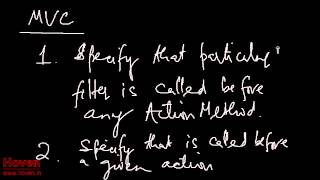 MVC
1. Specify that particular
filter is called before
any Action Method.
2. Specify that is called before
a given action
Hoven
www.hoven.in